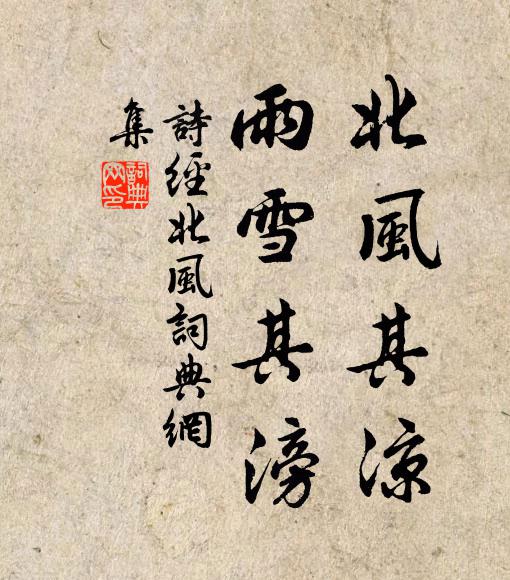 北風其涼
雨雪其滂
詩經北風詞典網
集
詞典網印